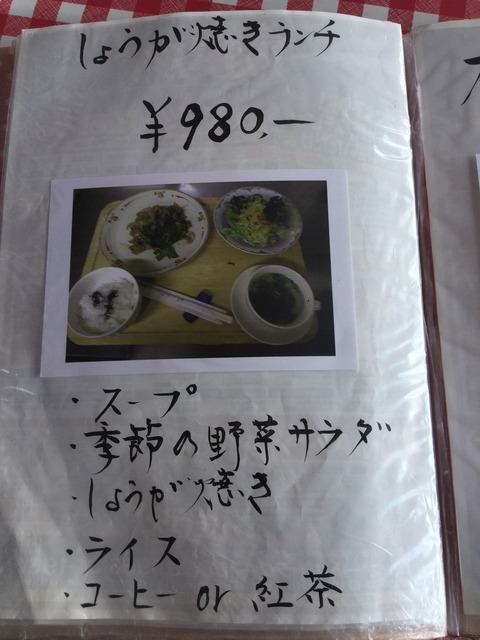 しょうが焼きランチ
¥980.ー
・スープ
・季節の野菜サラダ
・しょうが焼き
・ライス
・コーヒー or 紅茶